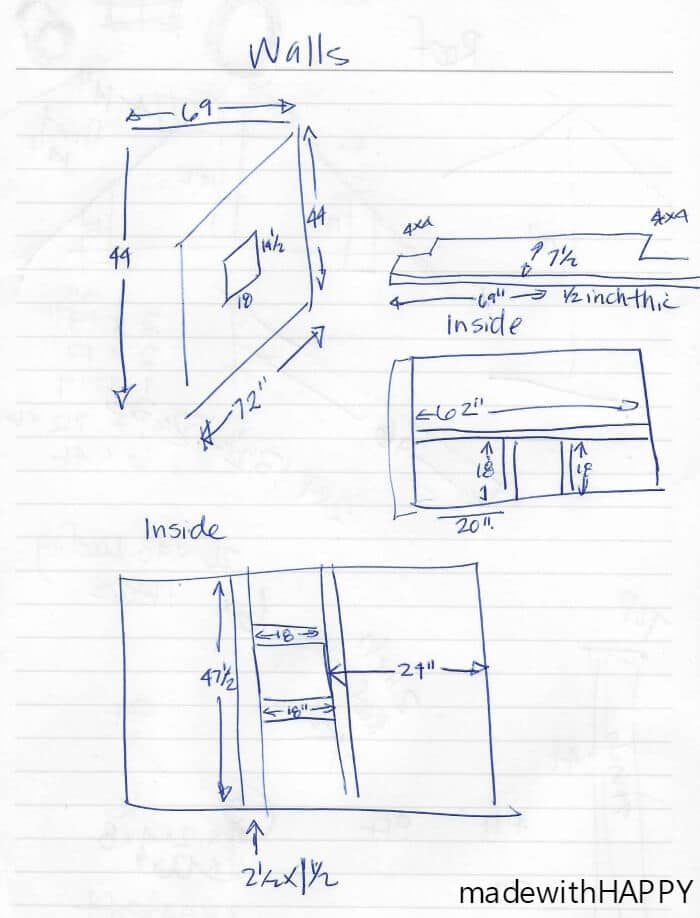 Walls
69
44
44
14½
18
72"
4x4
4x4
7½
69"
½ inch thic
Inside
62"
18
18
20".
Inside
18
47½
24"
18"
2½ x 1½
madewithHAPPY